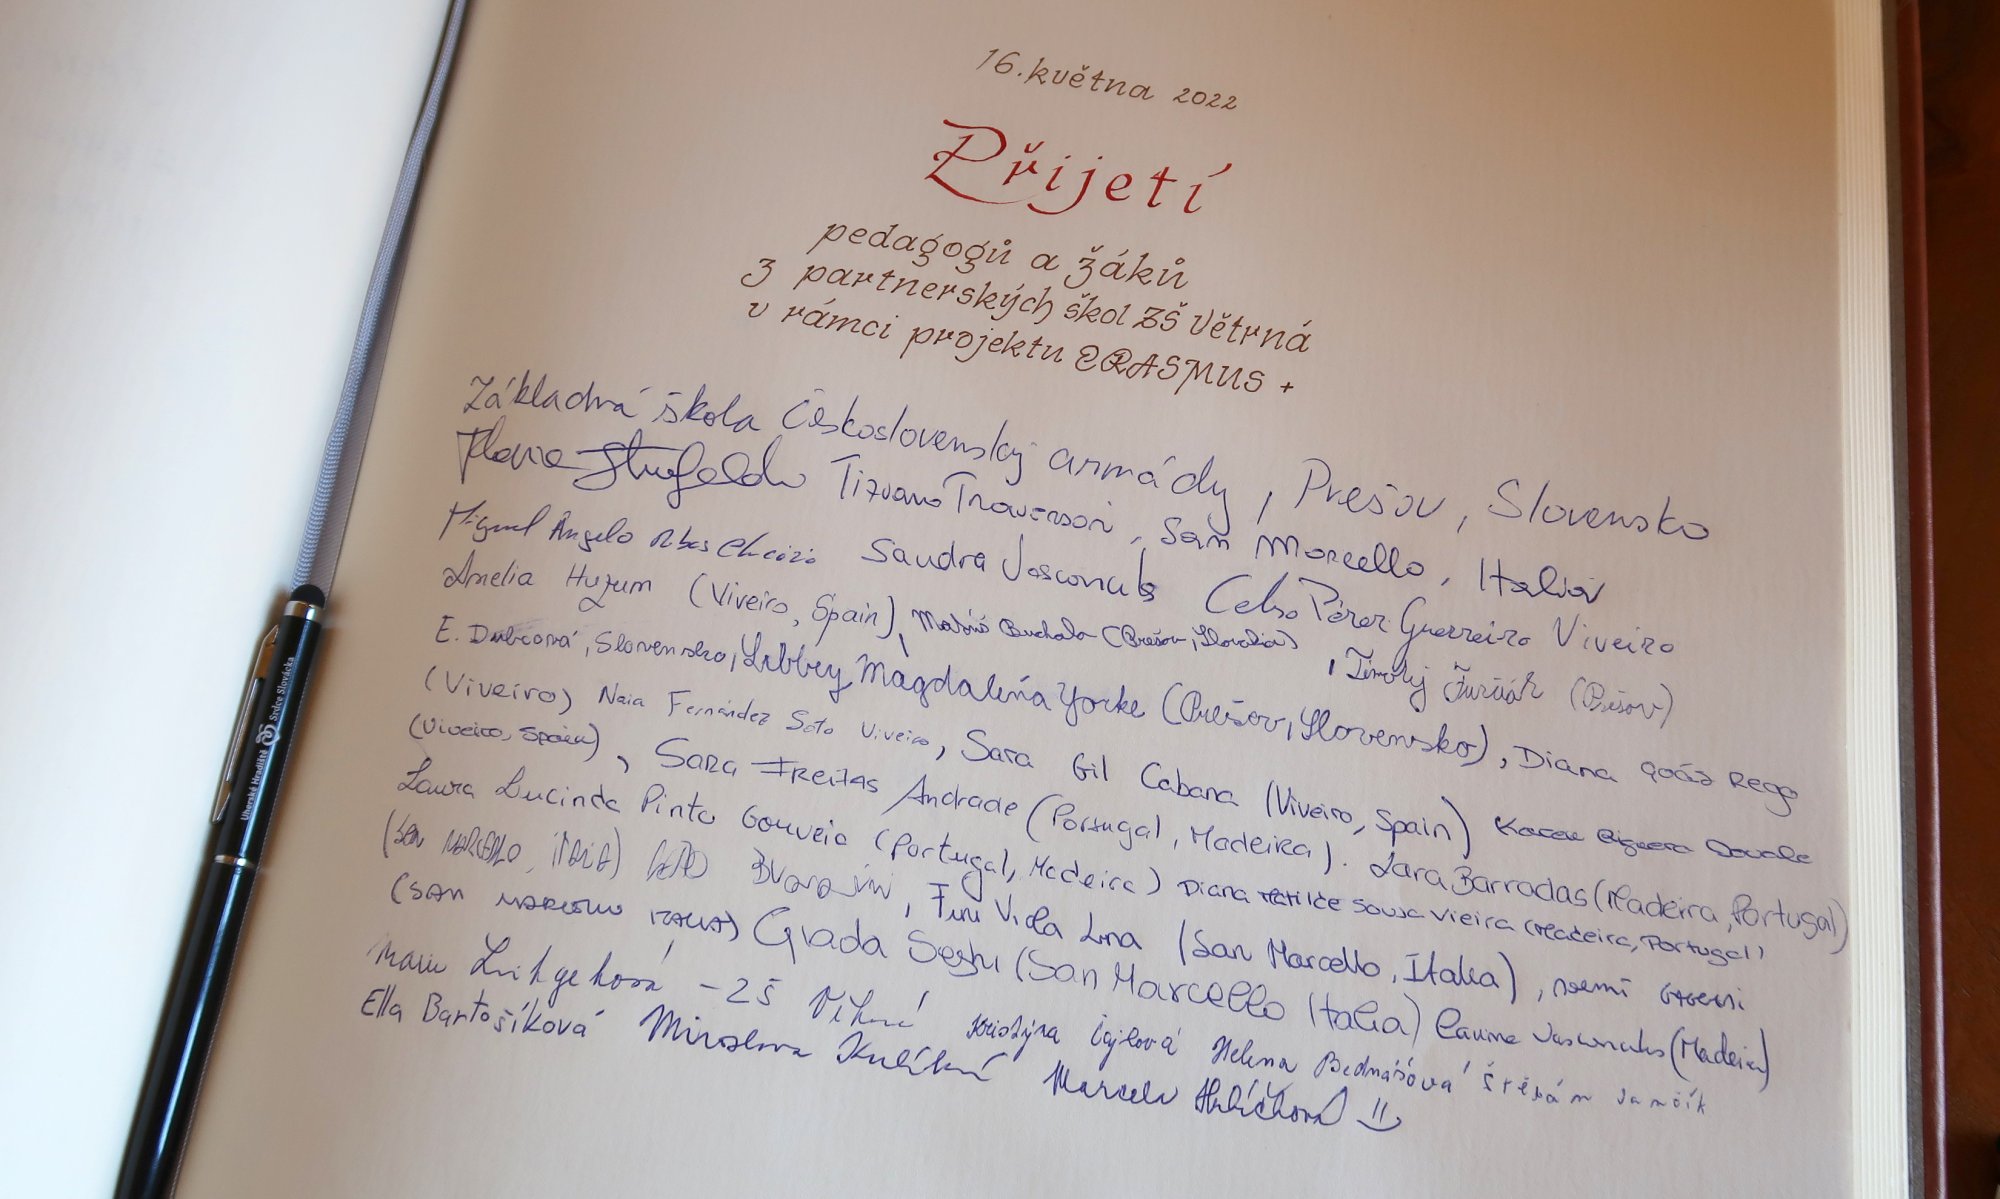 16. května 2022
Přijetí
pedagogů a žáků
z partnerských škol ZŠ Větrná
v rámci projektu ERASMUS +
Základná škola Československej armády, Prešov, Slovensko
Tiziano Traversari, San Marcello, Italia
Miguel Ângelo Sandra Vasconcelos Celso Pérez Guerreiro Viveiro
Amelia (Viveiro, Spain), Matúš Buchala (Prešov, Slovakia), Timotej (Prešov)
E. Dubcová, Slovensko, Libbey Magdaléna Yorke (Prešov, Slovensko), Diana Rego
(Viveiro) Naia Fernández Soto Viveiro, Sara Gil Cabana (Viveiro, Spain)
(Viveiro, Spain), Sara Freitas Andrade (Portugal, Madeira). Lara Barradas (Madeira, Portugal)
Laura Lucinda Pinto Gouveia (Portugal, Madeira) Diana Matilde Sousa Vieira (Madeira, Portugal)
(San Marcello, Italia) Viola Luna (San Marcello, Italia), Noemi
(San Marcello Italia) Giada (San Marcello Italia) Vasconcelos (Madeira)
- ZŠ Větrná Kristýna Helena Bednářová Štěpán Jančík
Ella Bartošíková Miroslava Marcela Hrdličková
Uherské Hradiště Srdce Slovácka